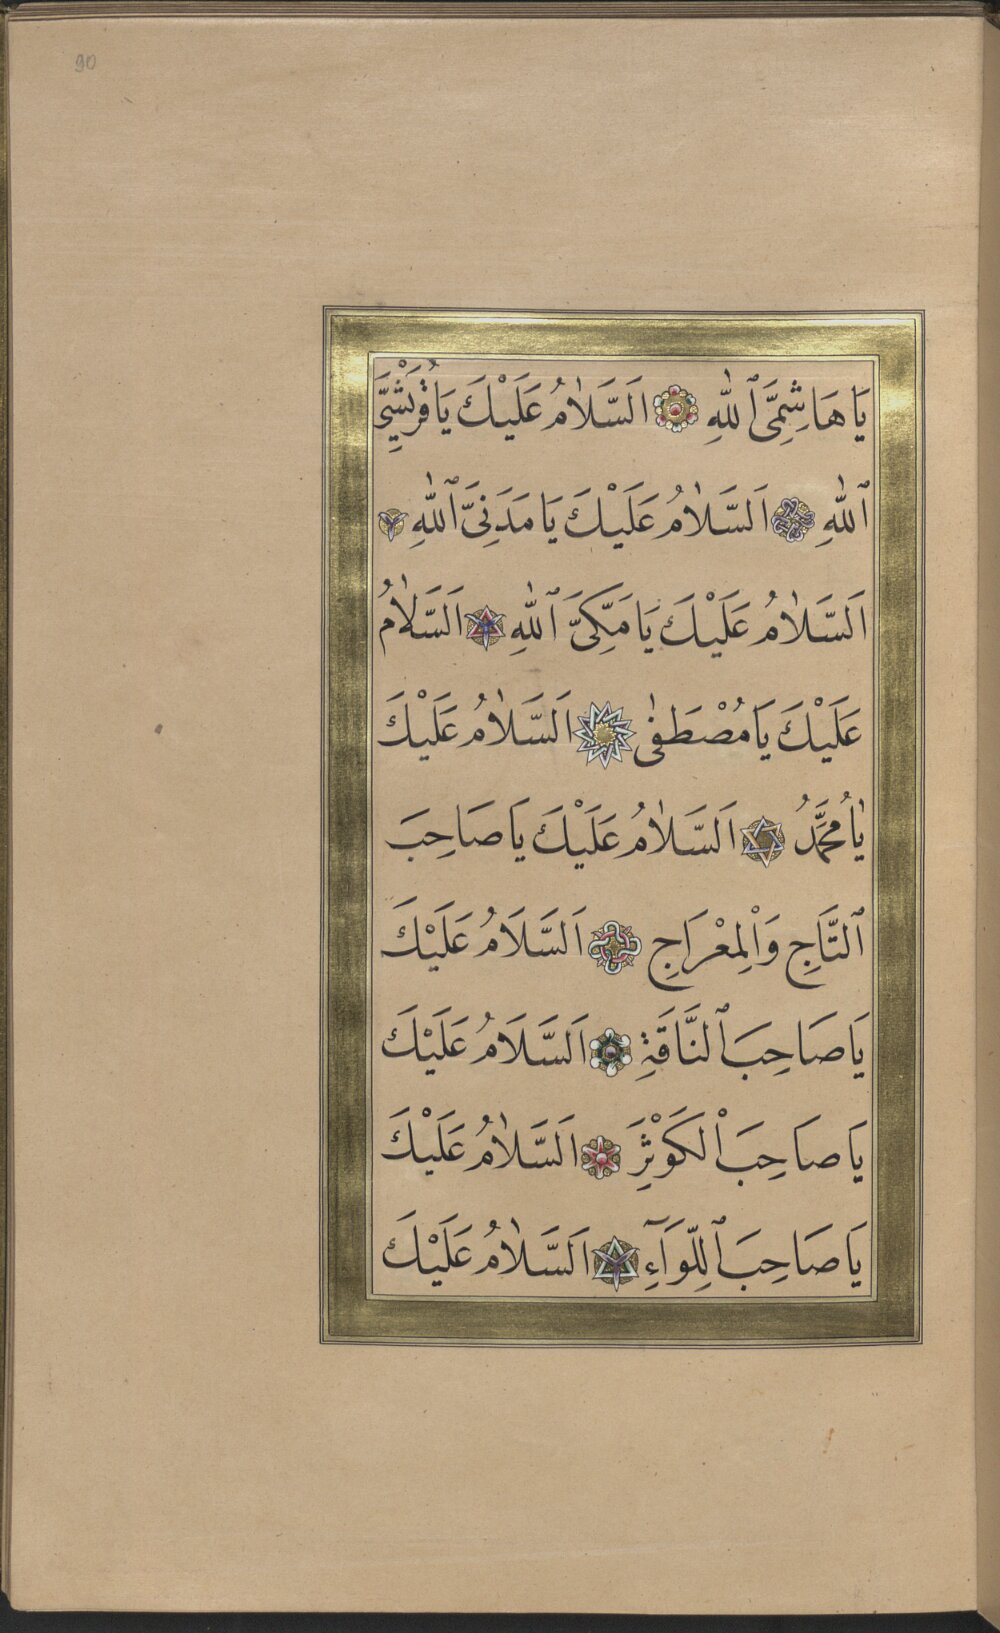 90
يَا هَاشِمِيَّ ٱللّٰهِ اَلسَّلَامُ عَلَيْكَ يَا قُرَيْشِيَّ
ٱللّٰهِ اَلسَّلَامُ عَلَيْكَ يَا مَدَنِيَّ ٱللّٰهِ
اَلسَّلَامُ عَلَيْكَ يَا مَكِّيَّ ٱللّٰهِ اَلسَّلَامُ
عَلَيْكَ يَا مُصْطَفٰى اَلسَّلَامُ عَلَيْكَ
يَا مُحَمَّدُ اَلسَّلَامُ عَلَيْكَ يَا صَاحِبَ
ٱلتَّاجِ وَٱلْمِعْرَاجِ اَلسَّلَامُ عَلَيْكَ
يَا صَاحِبَ ٱلنَّاقَةِ اَلسَّلَامُ عَلَيْكَ
يَا صَاحِبَ ٱلْكَوْثَرِ اَلسَّلَامُ عَلَيْكَ
يَا صَاحِبَ ٱللِّوَآءِ اَلسَّلَامُ عَلَيْكَ